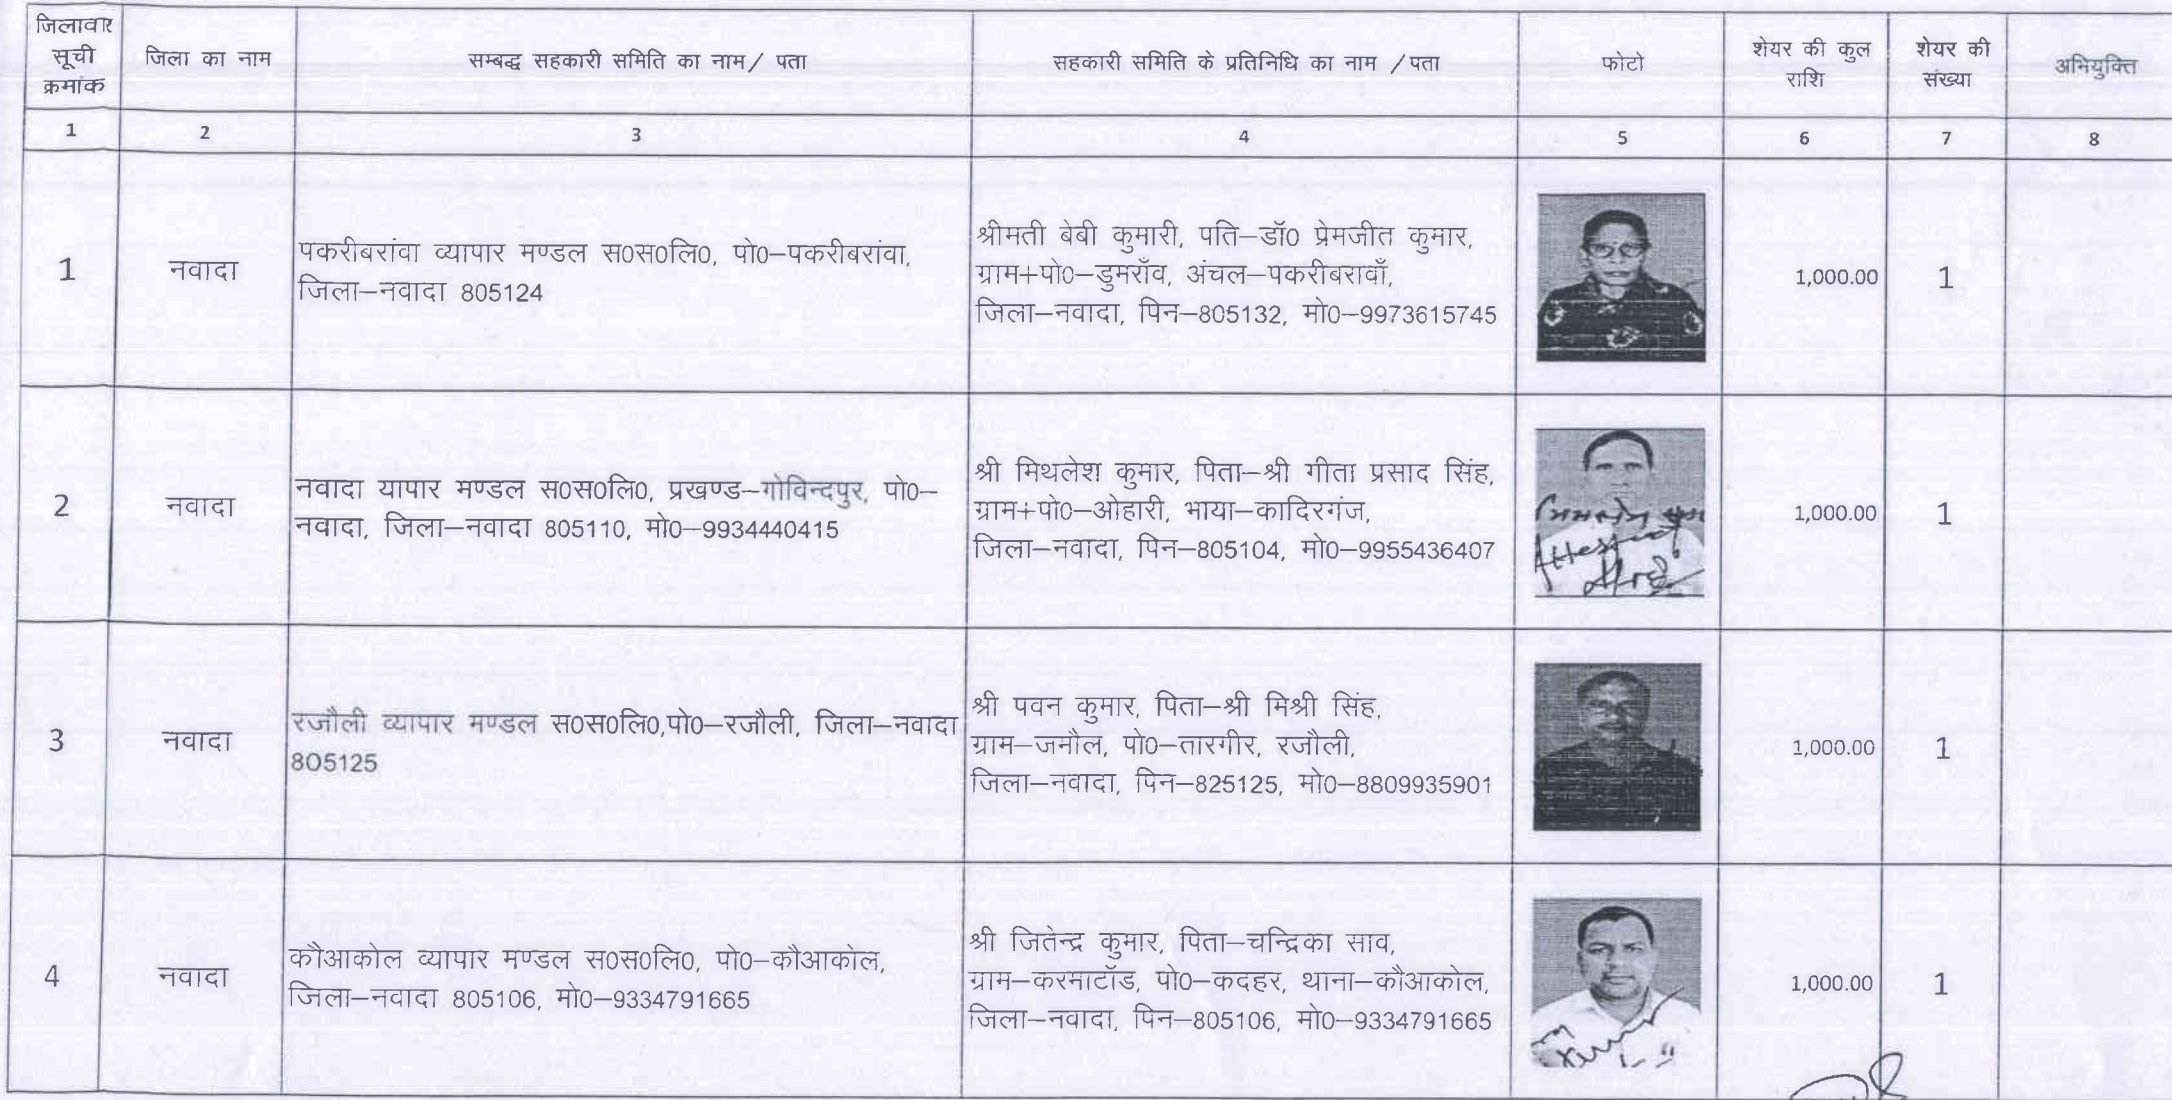 जिलावार सूची क्रमांक
जिला का नाम
सम्बद्ध सहकारी समिति का नाम/ पता
सहकारी समिति के प्रतिनिधि का नाम /पता
फोटो
शेयर की कुल राशि
शेयर की संख्या
अभियुक्ति
1 2 3 4 5 6 7 8
1
नवादा
पकरीबरांवा व्यापार मण्डल स0स0लि0, पो0–पकरीबरांवा,
जिला–नवादा 805124
श्रीमती बेबी कुमारी, पति–डॉ0 प्रेमजीत कुमार,
ग्राम+पो0–डुमराँव, अंचल–पकरीबरावाँ,
जिला–नवादा, पिन–805132, मो0–9973615745
1,000.00
1
2
नवादा
नवादा यापार मण्डल स0स0लि0, प्रखण्ड–गोविन्दपुर, पो0–
नवादा, जिला–नवादा 805110, मो0–9934440415
श्री मिथलेश कुमार, पिता–श्री गीता प्रसाद सिंह,
ग्राम+पो0–ओहारी, भाया–कादिरगंज,
जिला–नवादा, पिन–805104, मो0–9955436407
Attested
1,000.00
1
3
नवादा
रजौली व्यापार मण्डल स0स0लि0,पो0–रजौली, जिला–नवादा
805125
श्री पवन कुमार, पिता–श्री मिश्री सिंह,
ग्राम–जमौल, पो0–तारगीर, रजौली,
जिला–नवादा, पिन–825125, मो0–8809935901
1,000.00
1
4
नवादा
कौआकोल व्यापार मण्डल स0स0लि0, पो0–कौआकोल,
जिला–नवादा 805106, मो0–9334791665
श्री जितेन्द्र कुमार, पिता–चन्द्रिका साव,
ग्राम–करमाटॉड, पो0–कदहर, थाना–कौआकोल,
जिला–नवादा, पिन–805106, मो0–9334791665
1,000.00
1